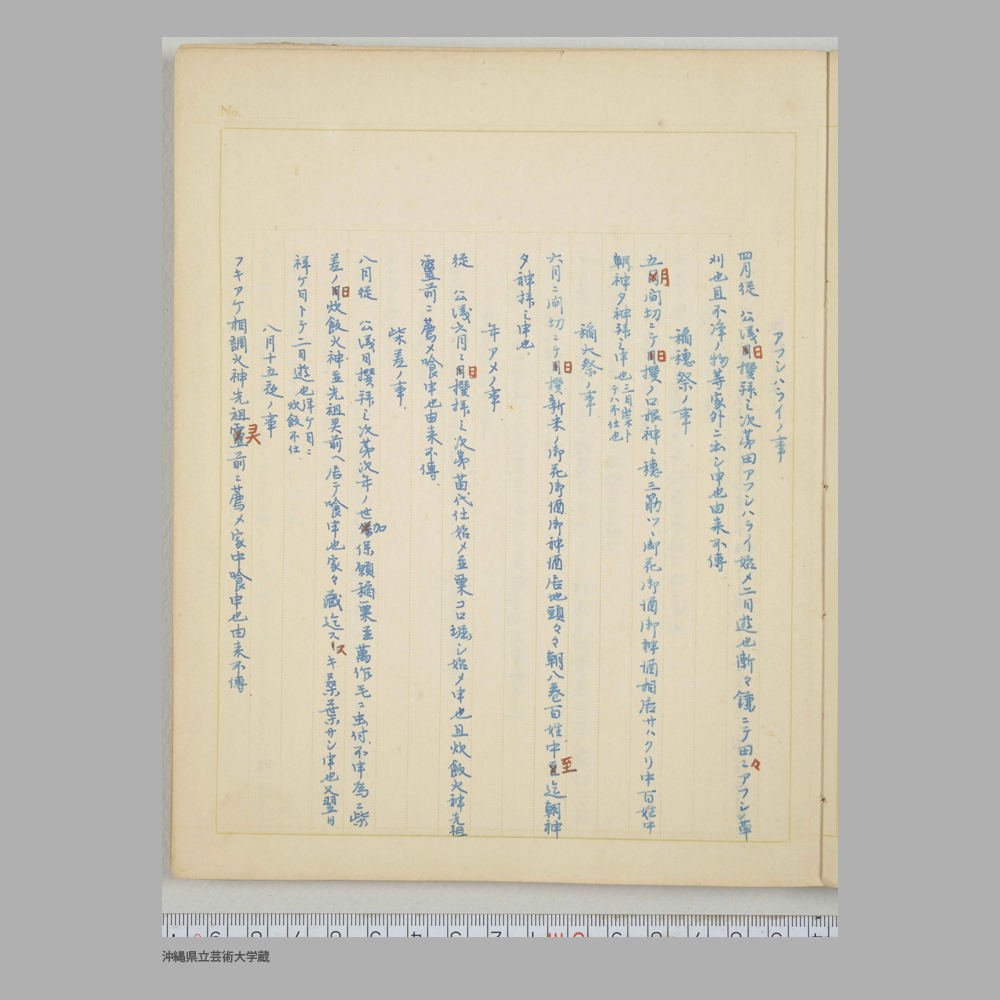 No.
アフシハライノ事
四月従 公儀日撰拝ミ次第田アフシハライ始メ二日遊也漸々鎌ニテ田々ミアフシ草
刈也且不浄ノ物等家外ニ出シ申也由来不傳
稲穂祭ノ事
五月間切ニテ日撰ノロ根神ニ穂三筋ツヽ御花御酒御神酒相居サハクリ中百姓中
朝神夕神拝ミ申也
稲大祭ノ事
六月ニ間切ニテ日撰新米ノ御花御酒御神酒居地頭々々朝八巻百姓中至迄朝神
夕神拝ミ申也
年アメノ事
従 公儀六月ニ日撰拝ミ次第苗代仕始メ並粟コロ堀シ始メ申也且炊飯火神先祖
靈前ニ薦メ喰申也由来不傳
柴差ノ事
八月従 公儀日撰拝ミ次第次年ノ世加保願稲粟並萬作毛ニ虫付不申為ニ柴
差ノ日炊飯火神並先祖昊前ヘ居テ喰申也家々藏迄ススキ桑葉サシ申也又翌日
祥ケ日トテ二日遊也祥ケ日ニ
炊飯不仕
八月十五夜ノ事
フキアケ相調火神先祖昊前ニ薦メ家中喰申也由来不傳
沖縄県立芸術大学蔵